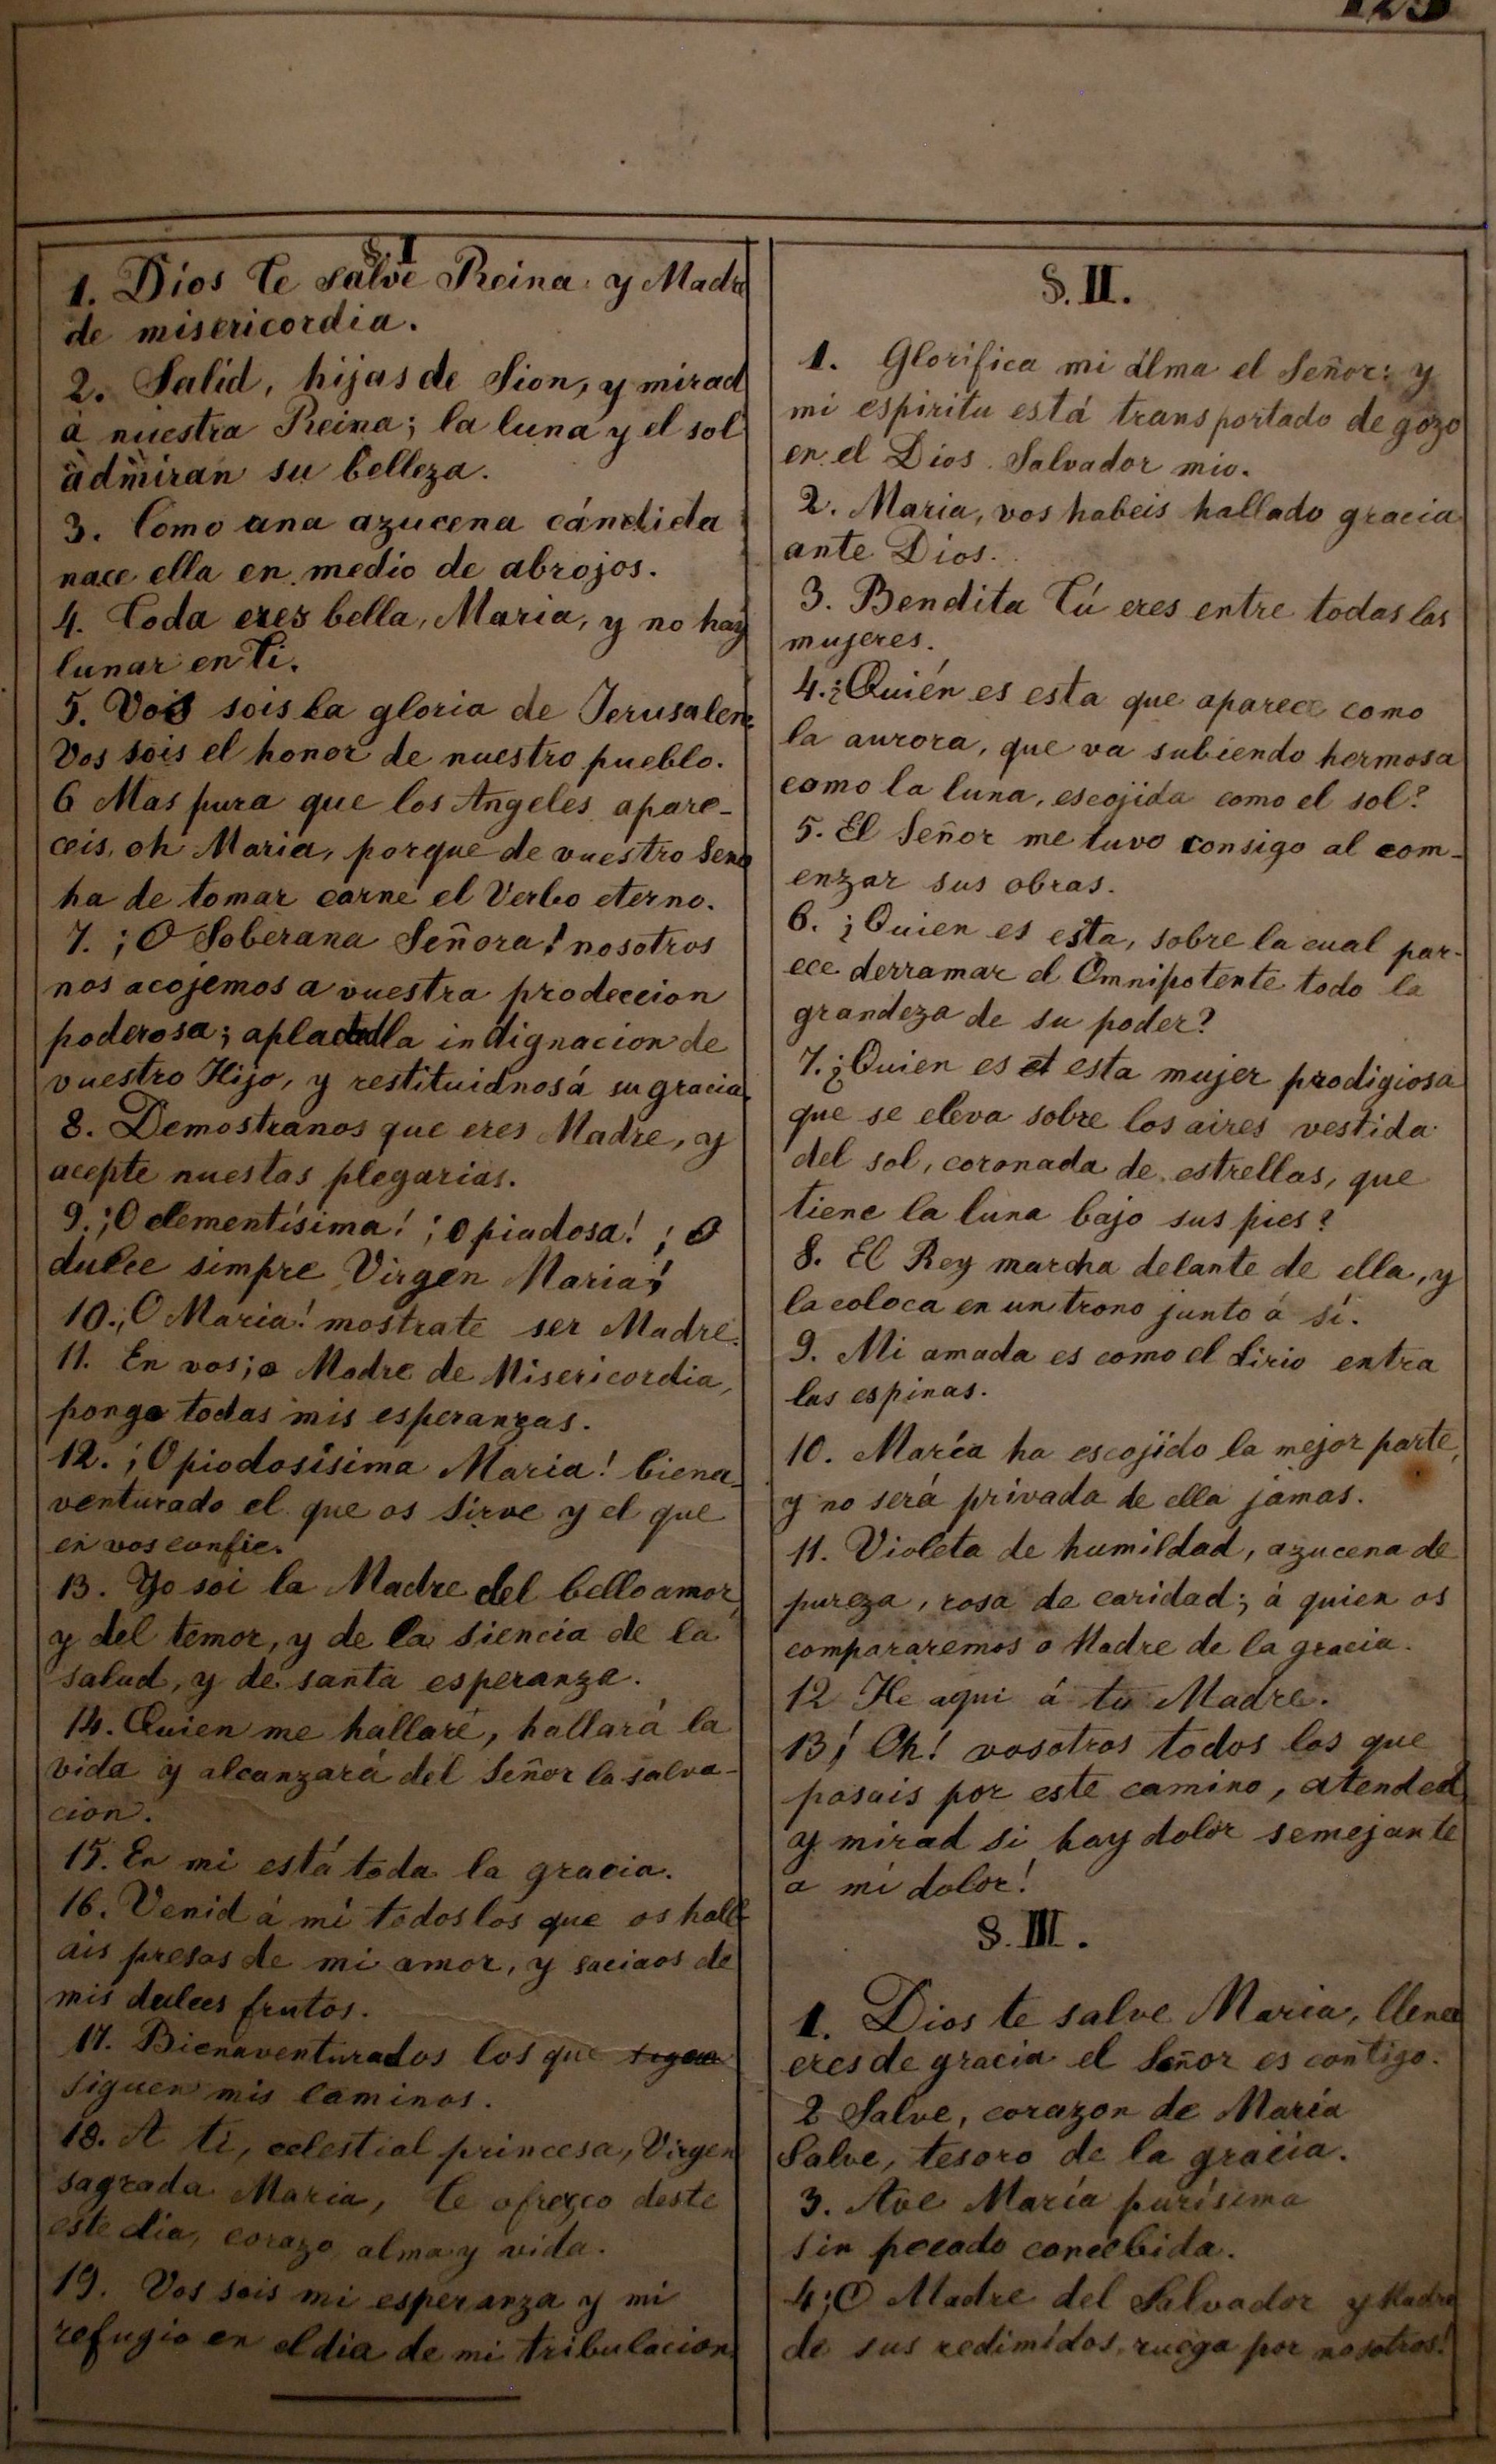 123
§. I
1. Dios te salve Reina y Madre
de misericordia.
2. Salid, hijas de Sion, y mirad
á nuestra Reina; la luna y el sol
admiran su belleza.
3. Como una azucena cándida
nace ella en medio de abrojos.
4. Toda eres bella, Maria, y no hay
lunar en Ti.
5. Vos sois la gloria de Jerusalen.
Vos sois el honor de nuestro pueblo.
6 Mas pura que los Angeles apare-
ceis, oh Maria, porque de vuestro Seno
ha de tomar carne el Verbo eterno.
7. ¡O Soberana Señora! nosotros
nos acojemos a vuestra prodeccion
poderosa; aplacad la indignacion de
vuestro Hijo, y restituidnos á su gracia.
8. Demostranos que eres Madre, y
acepte nuestas plegarias.
9. ¡O clementísima! ¡O piadosa! ¡O
dulce simpre Virgen Maria!
10. ¡O Maria! mostrate ser Madre.
11. En vos, ¡o Madre de Misericordia,
pongo todas mis esperanzas.
12. ¡O piodosísima Maria! biena-
venturado el que os sirve y el que
en vos confie.
13. Yo soi la Madre del bello amor,
y del temor, y de la siencia de la
salud, y de santa esperanza.
14. Quien me hallaré, hallará la
vida y alcanzará del Señor la salva-
cion.
15. En mi está toda la gracia.
16. Venid á mí todos los que os hall-
ais presos de mi amor, y saciaos de
mis dulces frutos.
17. Bienaventurados los que
siguen mis caminos.
18. A ti, celestial princesa, Virgen
sagrada Maria, te ofrezco deste
este dia, corazo alma y vida.
19. Vos sois mi esperanza y mi
refugio en el dia de mi tribulacion.
§. II.
1. Glorifica mi alma el Señor: y
mi espiritu está transportado de gozo
en el Dios Salvador mio.
2. Maria, vos habeis hallado gracia
ante Dios.
3. Bendita Tú eres entre todas las
mujeres.
4. ¿Quién es esta que aparece como
la aurora, que va subiendo hermosa
como la luna, escojida como el sol?
5. El Señor me tuvo consigo al com-
enzar sus obras.
6. ¿Quien es esta, sobre la cual par-
ece derramar el Omnipotente todo la
grandeza de su poder?
7. ¿Quien es esta mujer prodigiosa
que se eleva sobre los aires vestida
del sol, coronada de estrellas, que
tiene la luna bajo sus pies?
8. El Rey marcha delante de ella, y
la coloca en un trono junto á sí.
9. Mi amada es como el lirio entra
las espinas.
10. María ha escojido la mejor parte,
y no será privada de ella jamas.
11. Violeta de humildad, azucena de
pureza, rosa de caridad; á quien os
compararemos o Madre de la gracia.
12 He aqui á tu Madre.
13 ¡Oh! vosotros todos los que
pasais por este camino, atended,
y mirad si hay dolor semejante
a mí dolor!
§. III.
1. Dios te salve Maria, llena
eres de gracia el Señor es contigo.
2 Salve, corazon de María
Salve, tesoro de la gracia.
3. Ave María purísima
sin pecado concebida.
4 ¡O Madre del Salvador y Madre
de sus redimídos, ruega por nosotros!